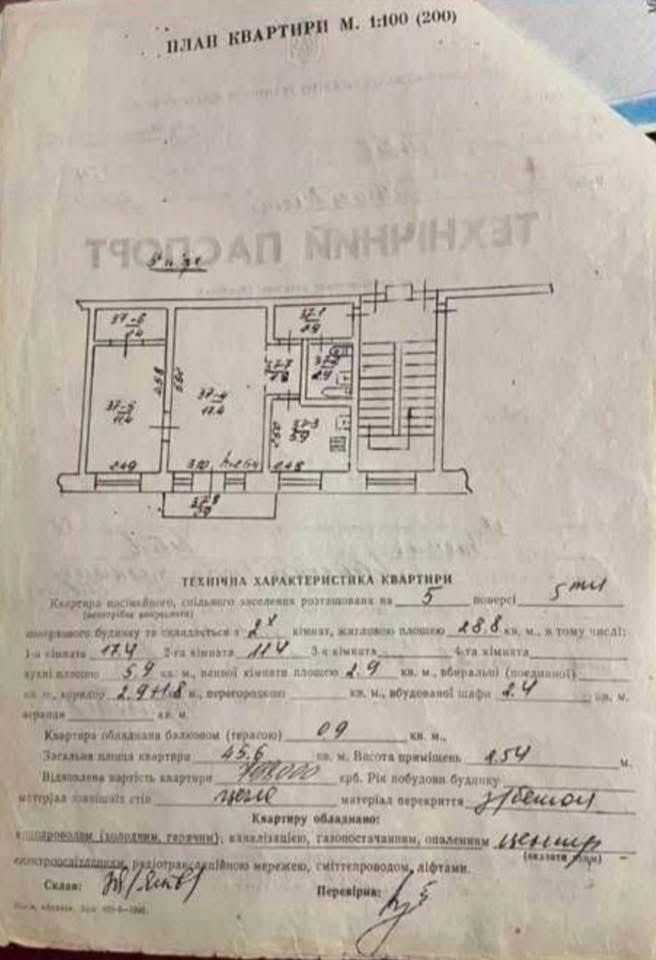 ПЛАН КВАРТИРИ М. 1:100 (200)
ТЕХНІЧНИЙ ПАСПОРТ
37-6
2.4
37-1
2.9
37-4
17.4
37-5
11.4
37-3
5.9
2.49
3.10
h=2.54
2.48
37-8
0.9
ТЕХНІЧНА ХАРАКТЕРИСТИКА КВАРТИРИ
Квартира посімейного, спільного заселення розташована на 5 поверсі 5ти
(непотрібне викреслити)
поверхового будинку та складається з 2х кімнат, житловою площею 28.8 кв. м., в тому числі:
1-а кімната 17.4 2-га кімната 11.4 3-я кімната 4-та кімната
кухні площею 5.9 кв. м., ванної кімнати площею 2.9 кв. м., вбиральні (поєднаної)
кв. м., коридор 2.9+1.8 м., перегородкою кв. м., вбудованої шафи 2.4 кв. м.
веранди кв. м.
Квартира обладнана балконом (терасою) 09 кв. м.,
Загальна площа квартири 45.6 кв. м. Висота приміщень 2.54 м.
Відновлена вартість квартири крб. Рік побудови будинку
матеріал зовнішніх стін цегла матеріал перекриття з/бетон
Квартиру обладнано:
водопроводом (холодним, гарячим), каналізацією, газопостачанням, опаленням центр
(вказати яким)
електроосвітленням, радіотрансляційною мережею, сміттєпроводом, ліфтами.
Склав:
Перевірив: